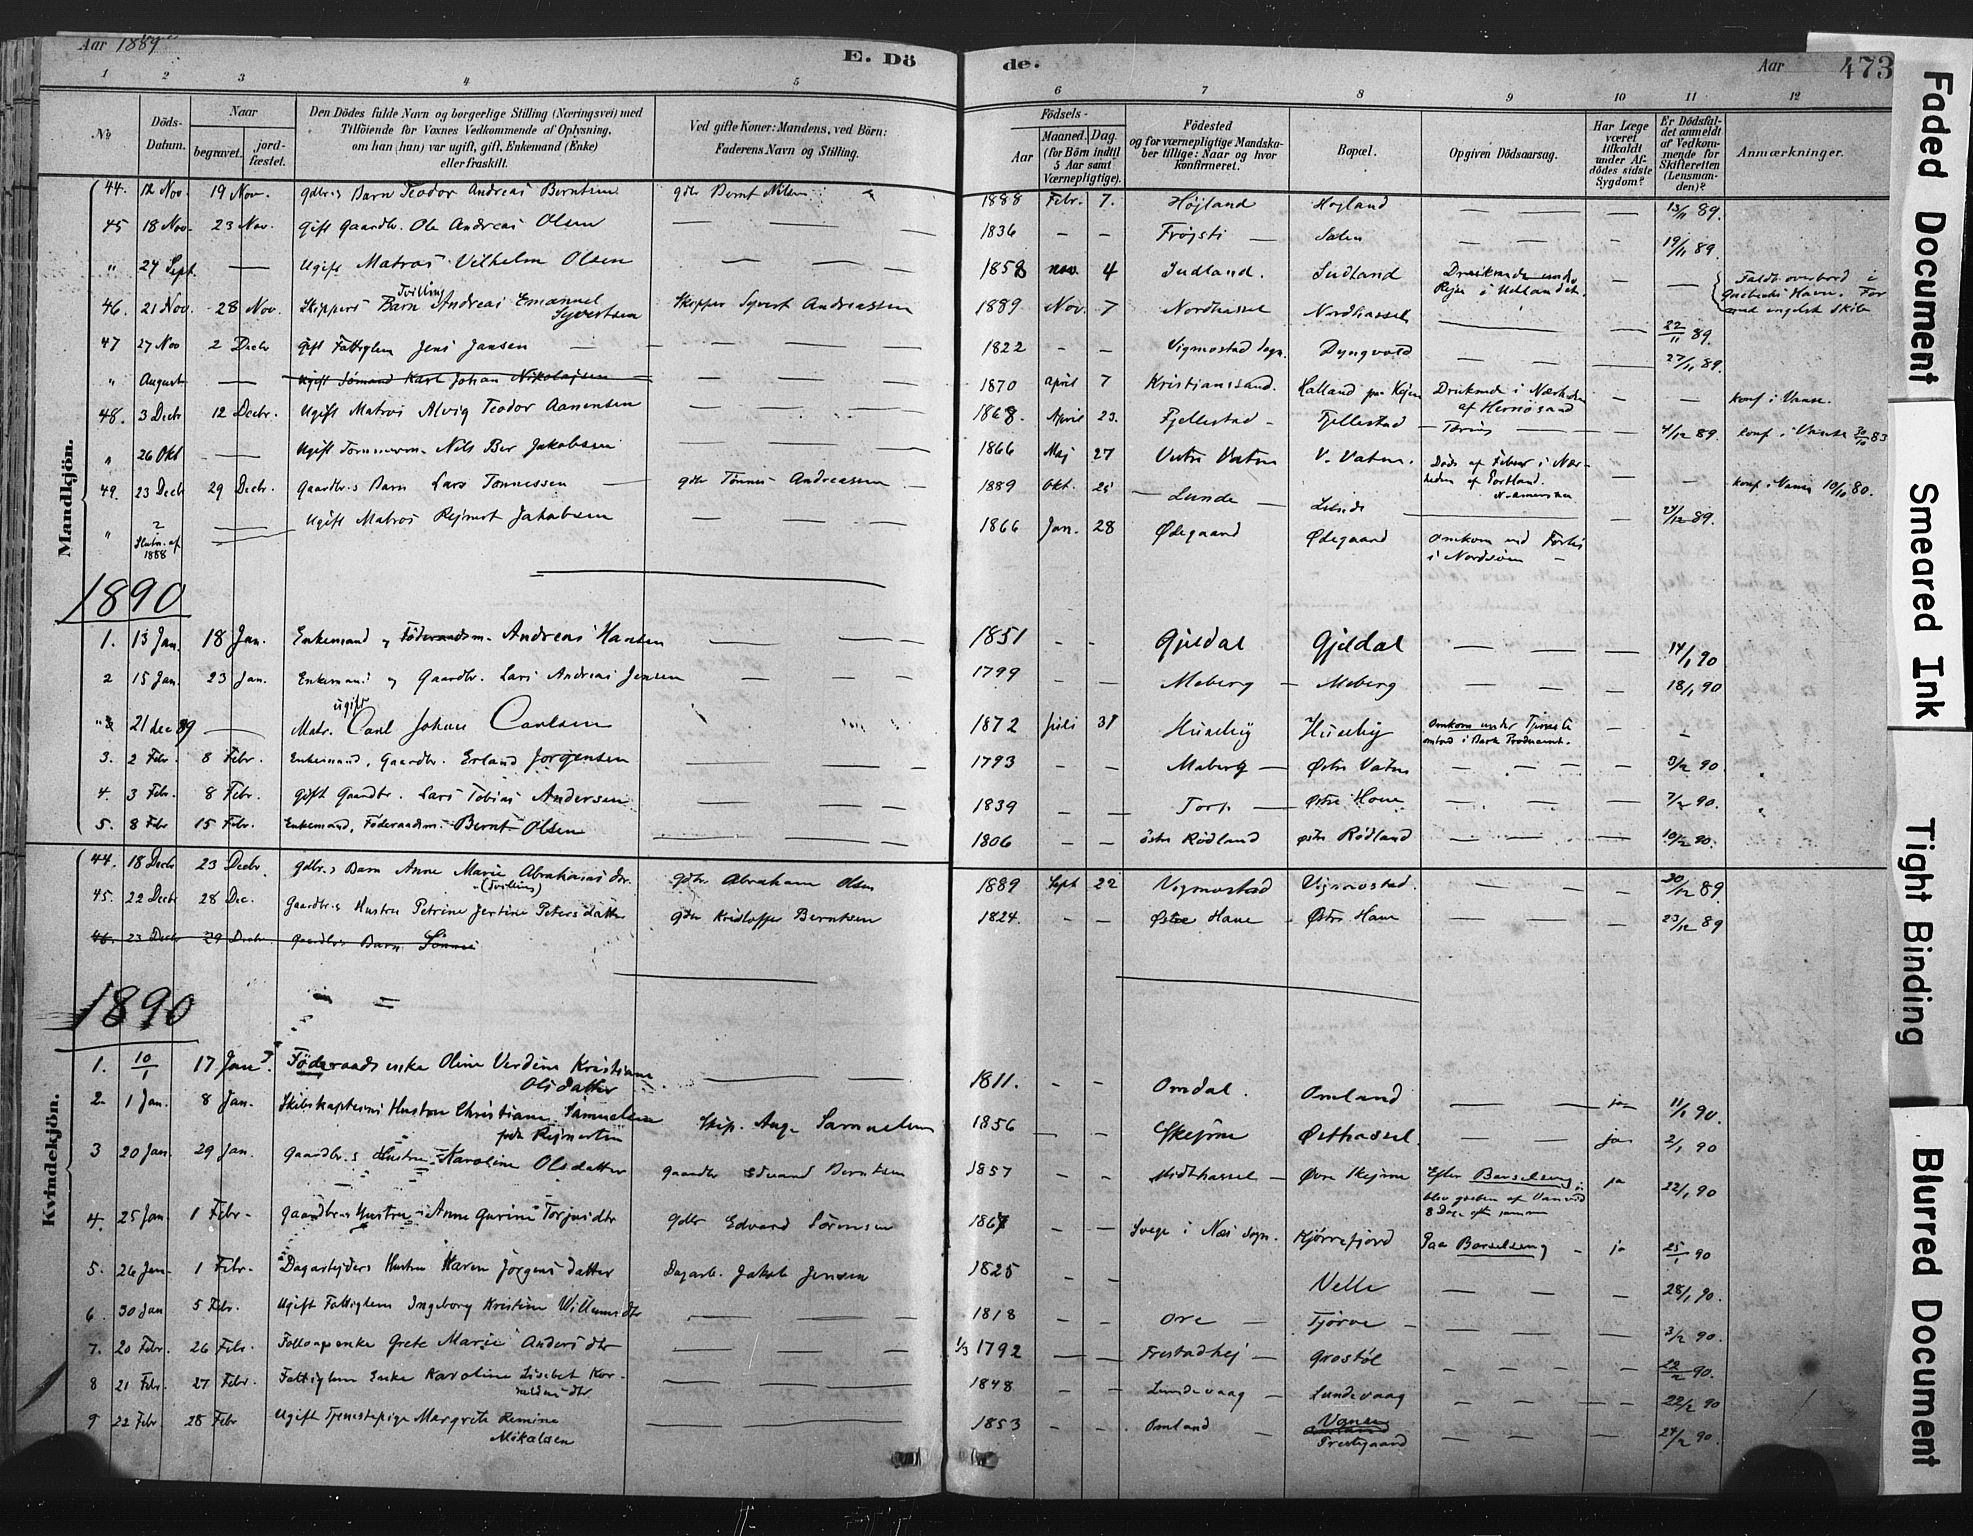 Aar 1889
E. Dö
de.
Aar
473
1 2 3 4 5 6 7 8 9 10 11 12
No
Döds-
Datum.
Naar
begravet.
jord-
fæstet.
Den Dödes fulde Navn og borgerlige Stilling (Næringsvei) med
Tilföiende for Voxnes Vedkommende af Oplysning,
om han (hun) var ugift, gift, Enkemand (Enke)
eller fraskilt.
Ved gifte Koner: Mandens, ved Börn:
Faderens Navn og Stilling.
Födsels-
Aar
Maaned. Dag.
(for Börn indtil
5 Aar samt
Værnepligtige).
Födested
og for værnepligtige Mandska-
ber tillige: Naar og hvor
konfirmeret.
Bopæl.
Opgiven Dödsaarsag.
Har Læge
været
tilkaldt
under Af-
dödes sidste
Sygdom?
Er Dödsfal-
det anmeldt
af Vedkom-
mende for
Skifteretten
(Lensman-
den)?
Anmærkninger.
Mandkjön.
44. 12 Nov. 19 Nov. Gdbr.s Barn Teodor Andreas Berntsen gdbr Bernt Nilsen 1888 Febr. 7. Højland Højland — — — 13/11 89.
45 18 Nov. 23 Nov. Gift Gaardbr. Ole Andreas Olsen — — — 1836 — — Frøjsti — — — — 19/11 89.
" 27 Sept. — Ugift Matros Vilhelm Olsen — — — 1858 nov. 4 Judland. Judland Druknede under
Rejse i Udlandet. — — Faldt overbord i
Havn. For
med engelsk Skib
46. 21 Nov. 28 Nov. Skippers Tvilling Barn Andreas Emanuel
Syvertsen Skipper Syvert Andreassen 1889 Nov. 7 Nordhassel Nordhassel — — 22/11 89.
47 27 Nov 2 Decbr Gift Fattiglem Jens Jansen — — — 1822 — — Vigmostad Sogn. Dyngvold — — — 27/11 89.
" August — Ugift Sømand Karl Johan Nikolajsen — — 1870 april 7 Kristianssand. Halland paa Druknede i Nærheden
af Hernøsand — — konf i Vanse.
48. 3 Decb 12 Decbr. Ugift Matros Alvig Teodor Aanensen — — — 1868. April 23. Fjellestad — Fjellestad — Tæring — — 4/12 89. konf. i Vanse 30/10 83
" 26 Okt — Ugift Tømmerm. Nils Ber Jakobsen — — — 1866 Maj 27 Vestre Vatne V. Vatne. Døde af Feber i Nær-
heden af Portland.
N. amerika — — konf. i Vanse 10/10 80.
49. 23 Decb 29 Decbr. Gaardbr.s Barn Lars Tønnessen — gdbr Tønnes Andreassen — 1889 Okt. 25 — Lunde — Lunde — — 24/12 89.
" ?
Slutn. af
1888 — Ugift Matros Rejnert Jakobsen — — — 1866 Jan. 28 Ødegaard Ødegaard Omkom ved Forlis
i Nordsøen —
1890
1. 13 Jan. 18 Jan. Enkemand og Föderaadsm. Andreas Hansen — — 1851 — — Gjeldal Gjeldal — — — 14/1 90
2 15 Jan. 23 Jan. Enkemand og Gaardbr. Lars Andreas Jensen — — 1799 — — Meberg — Meberg — — — 18/1 90
" 21 dec 89 — ugift
Matr. Carl Johan Carlsen 1872 Juli 31 Huseby Huseby Omkom under Tjeneste
ombord i Bark — —
3. 2 Febr. 8 Febr. Enkemand, Gaardbr. Erland Jørgensen — — — 1793 — — Meberg — Østre Vatne — — — 3/2 90.
4. 3 Febr. 8 Febr. Gift Gaardbr. Lars Tobias Andersen — — — 1839 — — Torp — Østre Hane — — — 7/2 90.
5. 8 Febr 15 Febr. Enkemand, Föderaadsm. Bernt Olsen — — — 1806 — — östre Rødland østre Rødland — — — 10/2 90.
Kvindekjön.
44. 18 Decb 23 Decbr. Gdbr.s Barn Anne Marie Abrahams dtr.
(Tvilling) Gdbr Abraham Olsen 1889 Sept 22 Vigmostad Vigmostad. — — — 20/12 89
45. 22 Decb 28 Dec. Gaardbr.s Hustru Petrine Jertine Peters datter Gdbr Kristoffer Berntsen 1824. — — Østre Hane — Østre Hane — — — 23/12 89
46. 23 Decb 29 Decbr. Gaardbr.s Barn
1890
1. 10/1 17 Jan. Föderaads enke Oline Verdine Kristiane
Olsdatter — — 1811. — — Omdal. Omland — — ja 11/1 90.
2. 1 Jan. 8 Jan. Skibskapteins Hustru Christiane Samuelsen
født Rejnertsen Skip. Aage Samuelsen 1856 — — Skejme Østhassel. — — ja 2/1 90
3 20 Jan. 29 Jan. Gaardbr.s Hustru Karoline Olsdatter gaardbr Edvard Berntsen 1857 — — Midthassel — Øvre Skejme Efter Barselseng;
8 Dage efter ja 22/1 90
4. 25 Jan. 1 Febr. Gaardbr.s Hustru Anne Gurine Torjus dtr Gdbr Edvard Sörensen 1867 — — Svege i Næs Sogn. Kjørrefjord Paa Barselseng — ja 25/1 90
5. 26 Jan. 1 Febr. Dagarbejders Hustru Karen Jørgens datter Dagarb. Jakob Jensen 1825 — — Nelle 28/1 90.
6 30 Jan 5 Febr. Ugift Fattiglem Ingeborg Kristine Willums dtr — — 1818 — Ore — Tjørve — — 3/2 90.
7. 20 Febr. 26 Febr. Grete Marie Anders dtr — — — 1/3 1792 — — Prestadhej — Grostöl — — — 22/2 90.
8 21 Febr. 27 Febr. Fattiglem Enke Karoline Lisebet Kor-
nelius dtr — — — 1848 — — Lundevaag — Lundevaag — — — 22/2 90
9 22 Febr 28 Febr Ugift Tjenestepige Margrete Remine
Mikalsen — — 1853 — — Omland — Vanse
Prestgaard — — — 24/2 90.
Faded Document
Smeared Ink
Tight Binding
Blurred Document